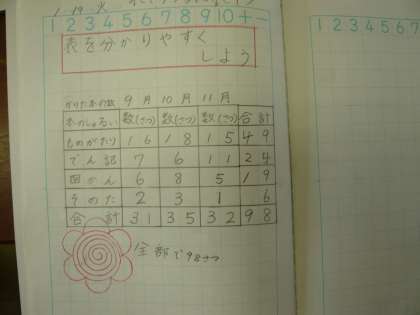 1.19 火
1 2 3 4 5 6 7 8 9 10 + -
1 2 3 4 5 6 7
表を分かりやすく
しよう
かりた本の数 9月 10月 11月
本のしゅるい 数(さつ) 数(さつ) 数(さつ) 合計
ものがたり 16 18 15 49
でん記 7 6 11 24
図かん 6 8 5 19
その他 2 3 1 6
合計 31 35 32 98
全部で98さつ